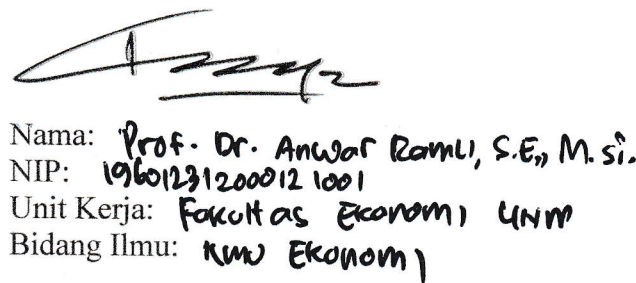 Nama: Prof. Dr. Anwar Ramli, S.E., M.si.
NIP: 196012312000121001
Unit Kerja: Fakultas Ekonomi UNM
Bidang Ilmu: Ilmu Ekonomi